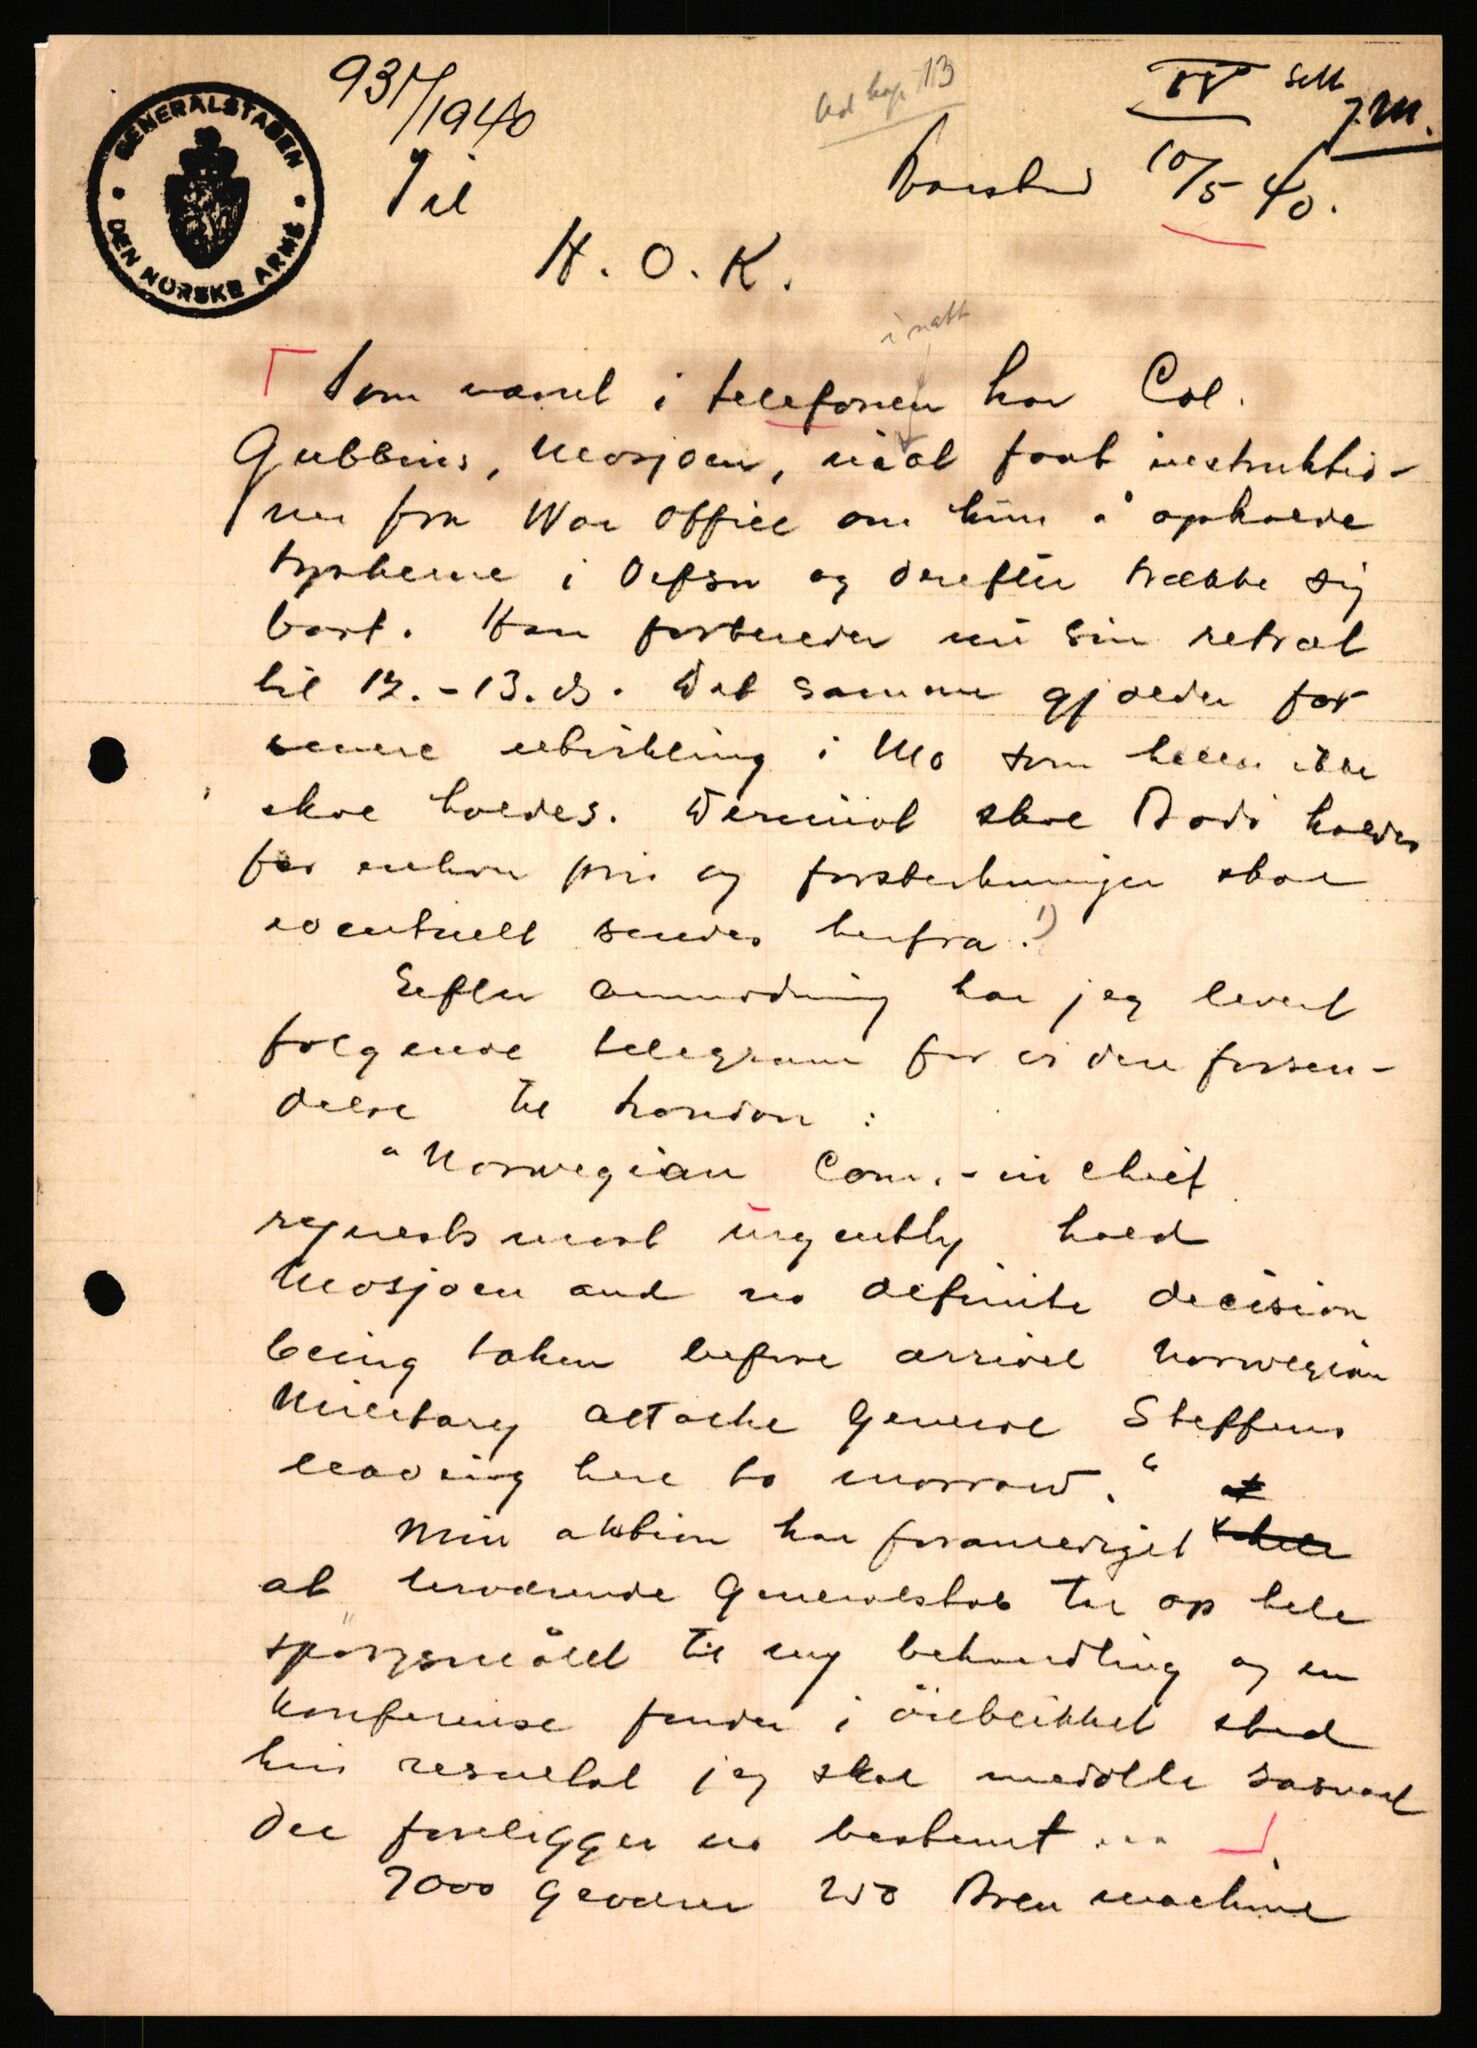 937/1940
Ved kap 13
IV sett
J.M.
GENERALSTABEN
DEN NORSKE ARMÉ
Til
Harstad 10/5 40.
H. O. K.
i natt
Som nævnt i telefonen har Col.
Gubbins, Mosjøen, faat instruktio-
ner fra War Office om kun å opholde
tyskerne i Vefsn og derefter trække sig
bort. Han forbereder nu sin retræt
til 12.-13. ds. Det samme gjælder for
senere utvikling i Mo som heller ikke
skal holdes. Derimot skal Bodø holdes
for enhver pris og forsterkninger skal
eventuelt sendes herfra. 1)
Efter anmodning har jeg levert
følgende telegram for videre forsen-
delse til London:
"Norwegian Com.-in chief
requests most urgently hold
Mosjøen and no definite decision
being taken before arrival Norwegian
Military attache General Steffens
leaving here to morrow."
Min aktion har foranlediget
at herværende Generalstab tar op hele
spørgsmålet til ny behandling og en
konferense finder i øieblikket sted
hvis resultat jeg skal meddele saasnart
der foreligger no bestemt ...
7000 geværer 250 Bren machine